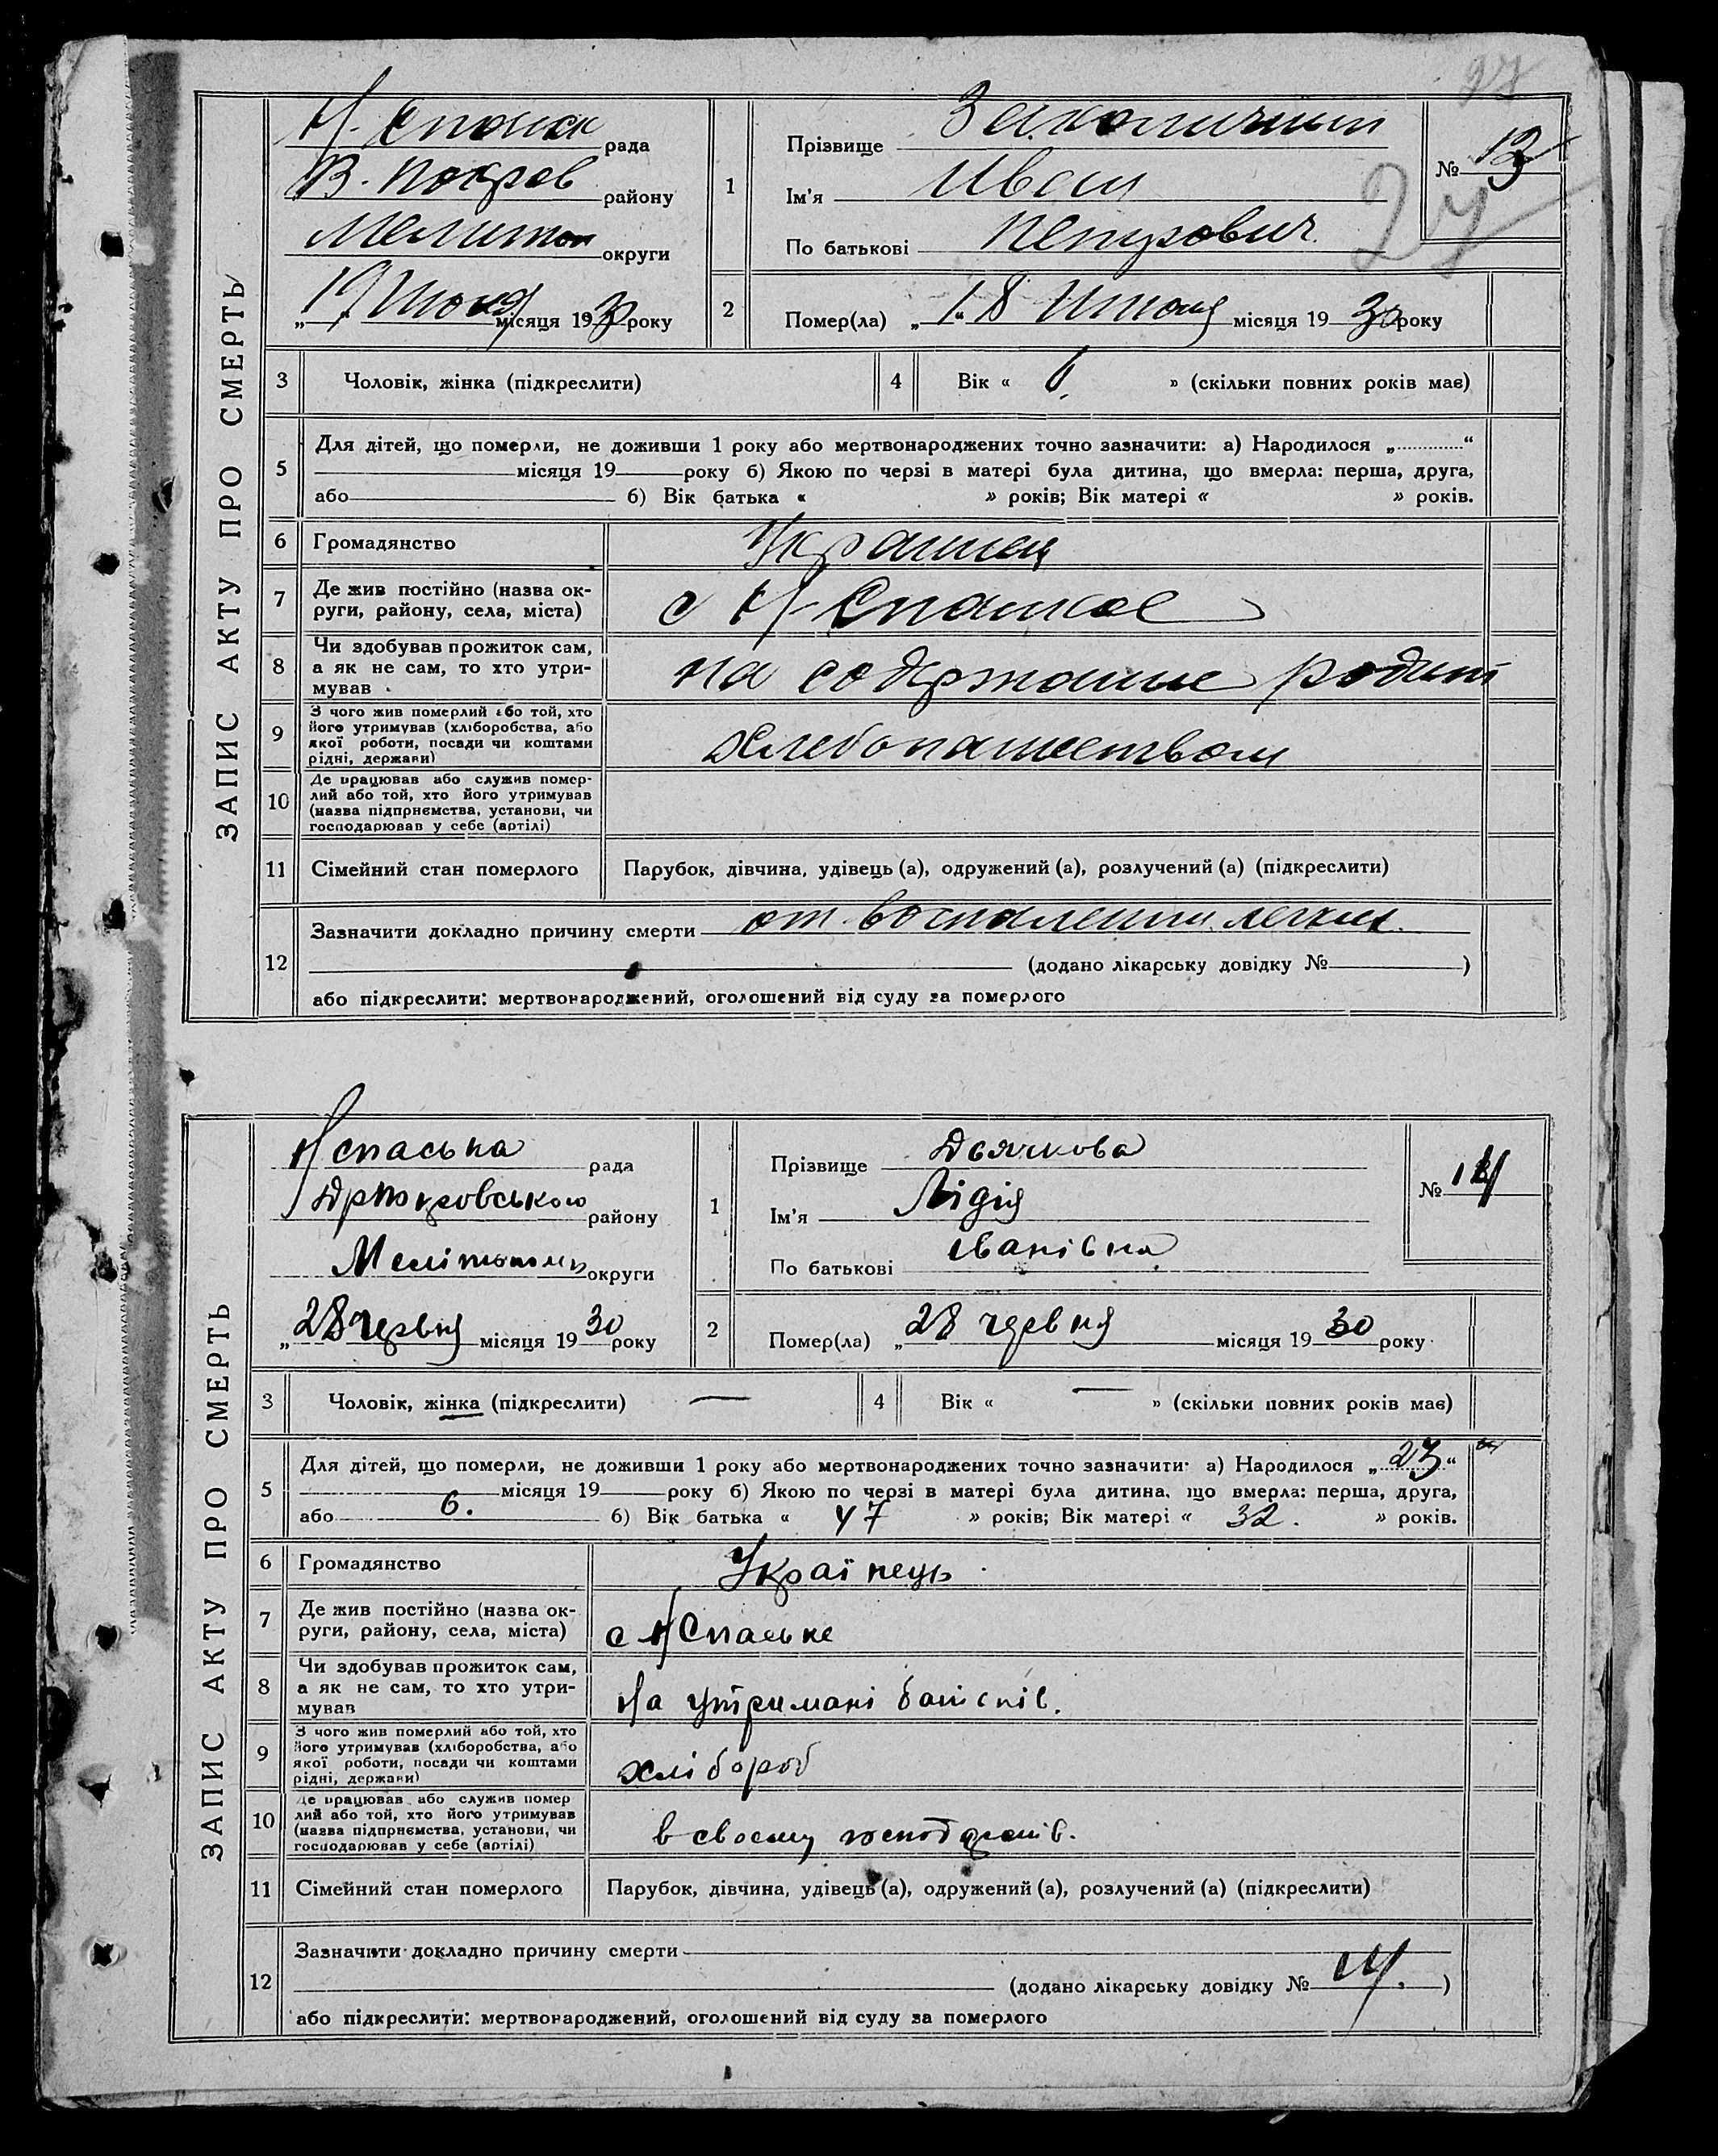 27
ЗАПИС АКТУ ПРО СМЕРТЬ
Н. Спаск рада
В. Покров району
Мелитоп округи
„19 июня місяця 1930 року
1
Прізвище
Ім'я Иван
По батькові Петрович
№ 13
27
2
Помер(ла) „18 Июня місяця 1930 року
3 Чоловік, жінка (підкреслити)
4 Вік « 6. » (скільки повних років має)
5 Для дітей, що померли, не доживши 1 року або мертвонароджених точно зазначити: а) Народилося „ “
місяця 19 року б) Якою по черзі в матері була дитина, що вмерла: перша, друга,
або б) Вік батька « » років; Вік матері « » років.
6 Громадянство Украинец
7 Де жив постійно (назва ок-
руги, району, села, міста) с Н-Спаское
8 Чи здобував прожиток сам,
а як не сам, то хто утри-
мував на содержание родит
9 З чого жив померлий або той, хто
його утримував (хліборобства, або
якої роботи, посади чи коштами
рідні, держави) хлебопашеством
10 Де працював або служив помер-
лий або той, хто його утримував
(назва підприємства, установи, чи
господарював у себе (артілі)
11 Сімейний стан померлого Парубок, дівчина, удівець (а), одружений (а), розлучений (а) (підкреслити)
12 Зазначити докладно причину смерти от воспаления легких.
(додано лікарську довідку № )
або підкреслити: мертвонароджений, оголошений від суду за померлого
ЗАПИС АКТУ ПРО СМЕРТЬ
Н Спаська рада
району
Мелітополь округи
„28 червня місяця 1930 року
1
Прізвище Дьячкова
Ім'я Лідія
По батькові Іванівна
№ 14
2
Помер(ла) „28 червня місяця 1930 року
3 Чоловік, жінка (підкреслити) —
4 Вік « — » (скільки повних років має)
5 Для дітей, що померли, не доживши 1 року або мертвонароджених точно зазначити: а) Народилося „23“
місяця 19 року б) Якою по черзі в матері була дитина, що вмерла: перша, друга,
або 6. б) Вік батька « 47 » років; Вік матері « 32. » років.
6 Громадянство Українець
7 Де жив постійно (назва ок-
руги, району, села, міста) с Н Спаське
8 Чи здобував прожиток сам,
а як не сам, то хто утри-
мував На утримані батьків.
9 З чого жив померлий або той, хто
його утримував (хліборобства, або
якої роботи, посади чи коштами
рідні, держави) хлібороб
10 Де працював або служив помер
лий або той, хто його утримував
(назва підприємства, установи, чи
господарював у себе (артілі) в своему
11 Сімейний стан померлого Парубок, дівчина, удівець (а), одружений (а), розлучений (а) (підкреслити)
12 Зазначити докладно причину смерти
(додано лікарську довідку № 14. )
або підкреслити: мертвонароджений, оголошений від суду за померлого